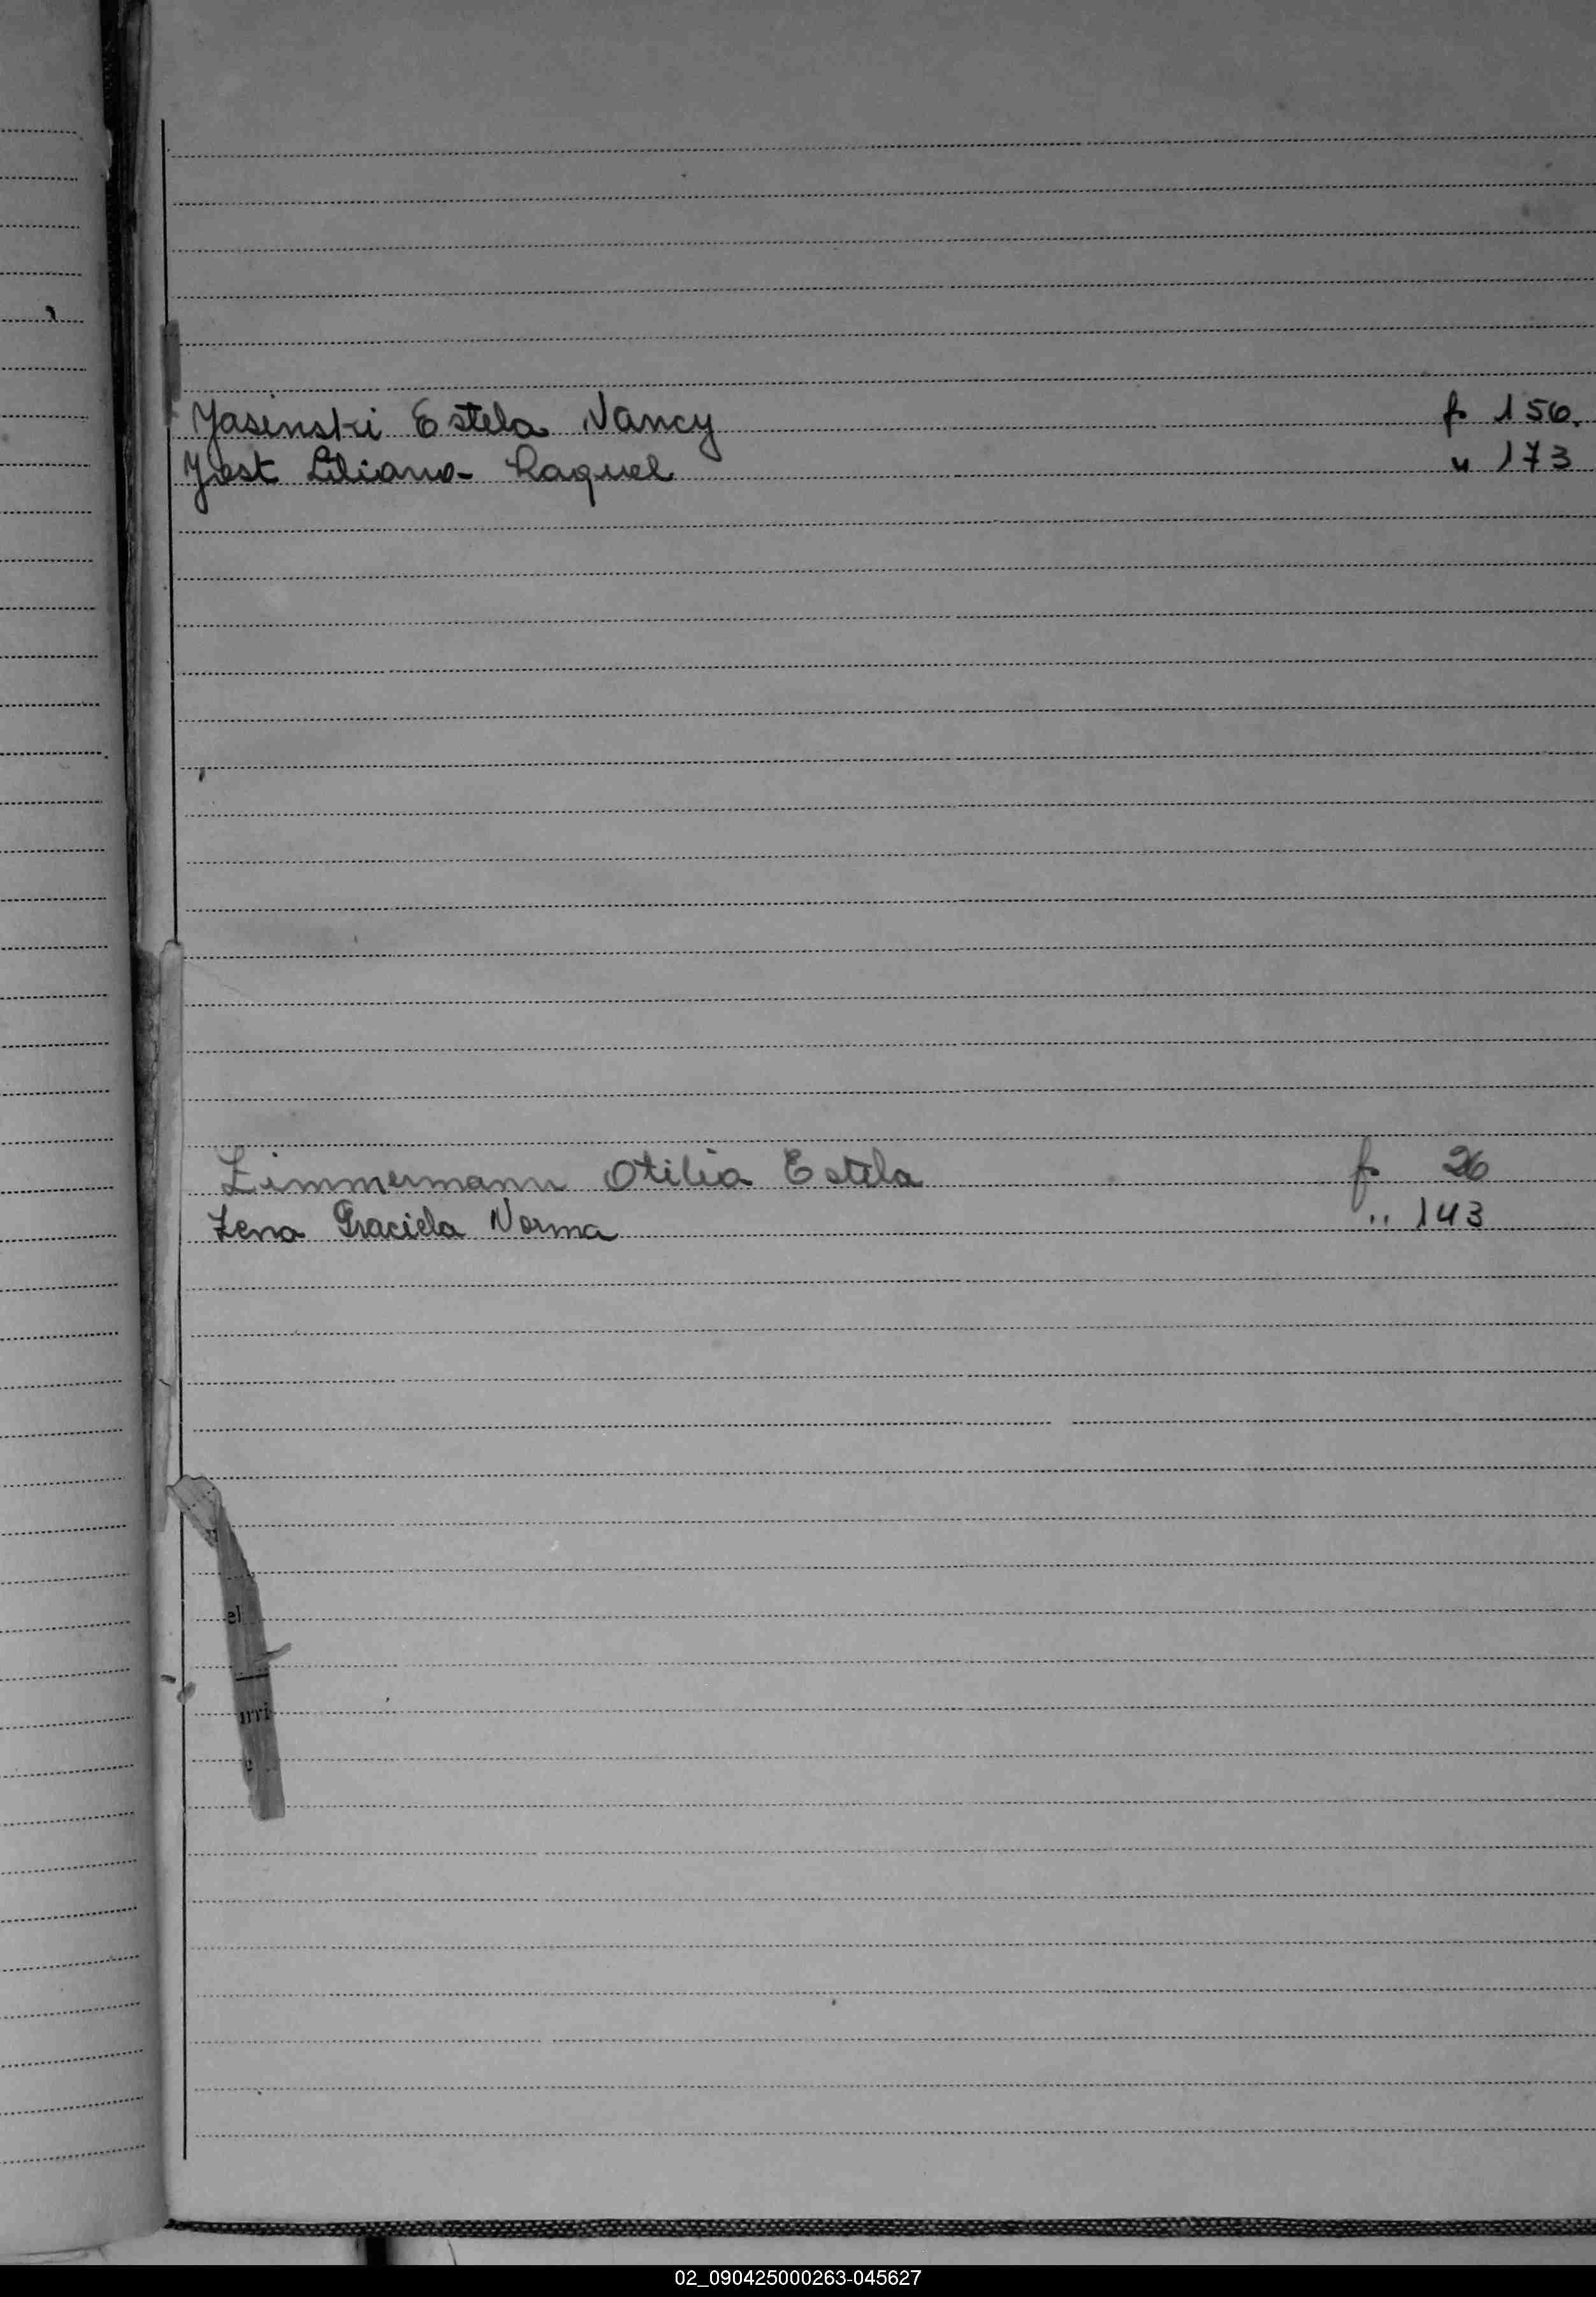 Yasinski Estela Nancy f 156.
Yost Liliana Raquel " 173
Zimmermann Otilia Estela f 26
Zena Graciela Norma " 143
el
urri
e
02_090425000263-045627